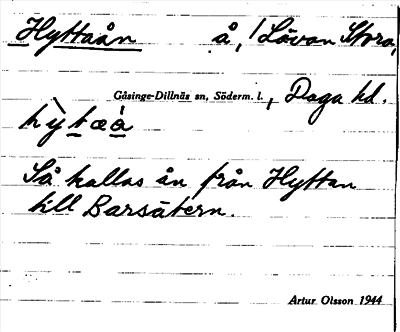 Hyttaån å, Lövan Stora,
Gåsinge-Dillnäs sn, Söderm. l., Daga hd.
Så kallas ån från Hyttan
till Barsätern.
Artur Olsson 1944